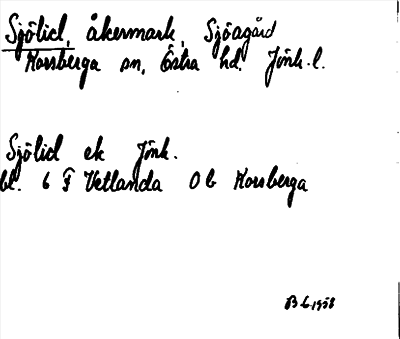 Sjölid, åkermark, Sjöagård
Korsberga sn, Östra hd. Jönk. l.
Sjölid ek Jönk.
bl. 6 F Vetlanda 0 b Korsberga